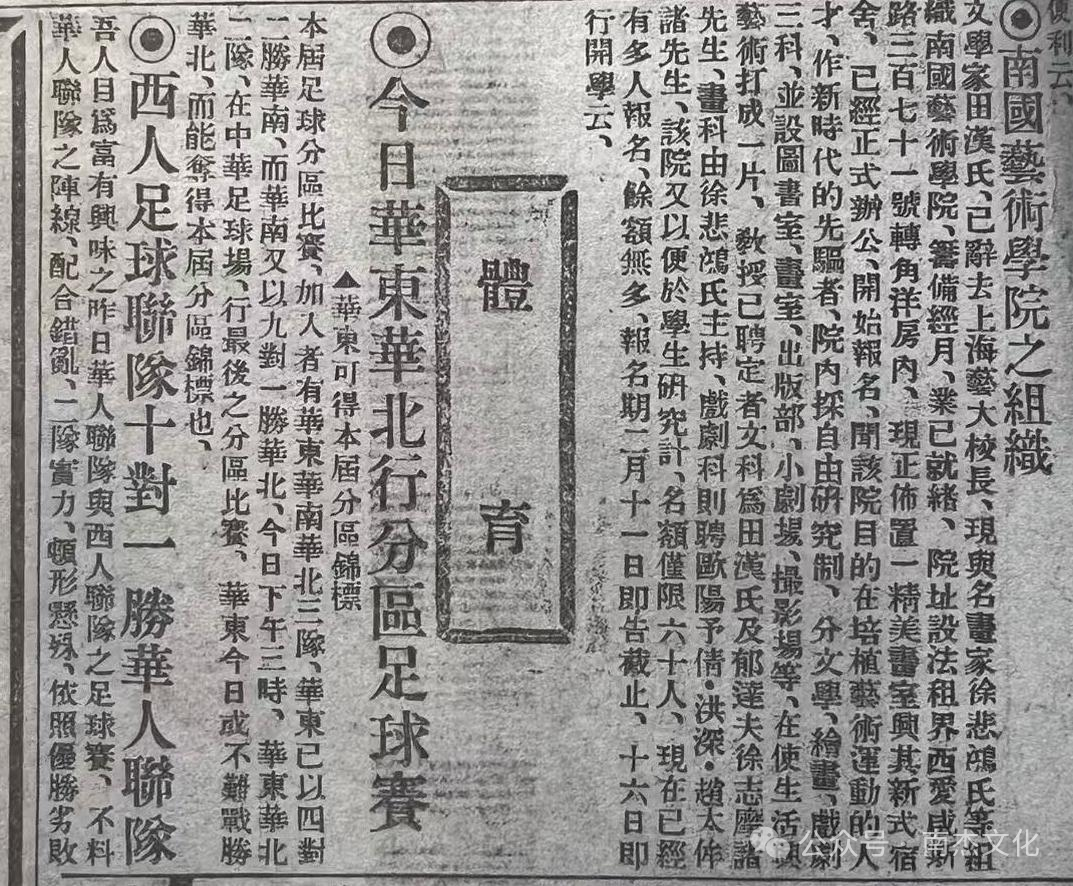 便利云、
◉南國藝術學院之組織
文學家田漢氏、已辭去上海藝大校長、現與名畫家徐悲鴻氏等組
織南國藝術學院、籌備經月、業已就緒、院址設法租界西愛咸斯
路三百七十一號轉角洋房內、現正佈置一精美畫室與其新式宿
舍、已經正式辦公、開始報名、聞該院目的在培植藝術運動的人
才、作新時代的先驅者、院內採自由研究制、分文學、繪畫、戲劇
三科、並設圖書室、畫室、出版部、小劇場、撮影場等、在使生活與
藝術打成一片、敎授已聘定者文科爲田漢氏及郁達夫徐志摩諸
先生、畫科由徐悲鴻氏主持、戲劇科則聘歐陽予倩·洪深·趙太侔
諸先生、該院又以便於學生研究計、名額僅限六十人、現在已經
有多人報名、餘額無多、報名期二月十一日即告截止、十六日即
行開學云、
體育
◉今日華東華北行分區足球賽
▲華東可得本屆分區錦標
本屆足球分區比賽、加入者有華東華南華北三隊、華東已以四對
二勝華南、而華南又以九對一勝華北、今日下午三時、華東華北
二隊、在中華足球場、行最後之分區比賽、華東今日或不難戰勝
華北、而能奪得本屆分區錦標也、
◉西人足球聯隊十對一勝華人聯隊
吾人目爲富有興味之昨日華人聯隊與西人聯隊之足球賽、不料
華人聯隊之陣線、配合錯亂、二隊實力、頓形懸殊、依照優勝劣敗
公众号·南杰文化